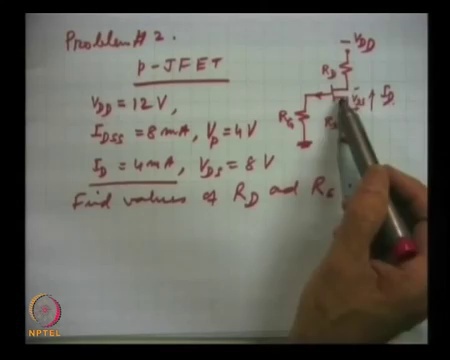 Problem # 2.
p-JFET
V_DD = 12 V,
I_DSS = 8 mA, V_p = 4V
I_D = 4 mA, V_DS = 8 V
Find values of R_D and R_S
-V_DD
R_D
V_DS
I_D
R_G
NPTEL